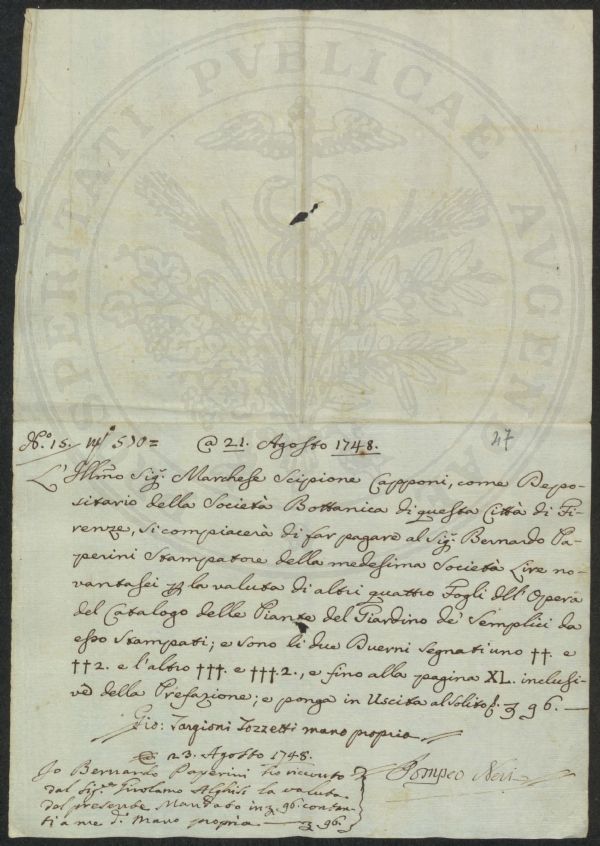 PROSPERITATI PVBLICAE AVGENDAE
N.º 15. 510 = @ 21. Agosto 1748. 47
L'Illmo Sig. Marchese Scipione Capponi, come Depo-
sitario della Società Bottanica di questa Città di Fi-
renze, si compiacerà di far pagare al Sig. Bernardo Pa-
perini Stampatore della medesima Società Lire no-
vantasei la valuta di altri quattro Fogli dell'Opera
del Catalogo delle Piante del Giardino de Semplici da
esso Stampati; e sono li due Duerni segnati uno ††. e
††2. e l'altro †††. e †††.2., e fino alla pagina XL. inclusi-
ve della Prefazione; e ponga in Uscita al solito 96. —
Gio: Targioni Tozzetti mano propria
@ 23. Agosto 1748.
Io Bernardo Paperini ho ricevuto
dal Sig. Girolamo la valuta
dal presente Mandato in 96. contan-
ti a me d.º mano propria — 96.
Pompeo Neri